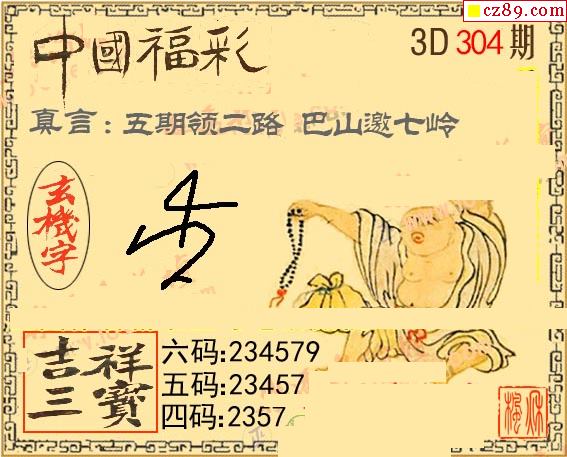 cz89.com
中國福彩
3D 304 期
真言：五期领二路 巴山邀七岭
玄機字
吉祥三寶
六码:234579
五码:23457
四码:2357